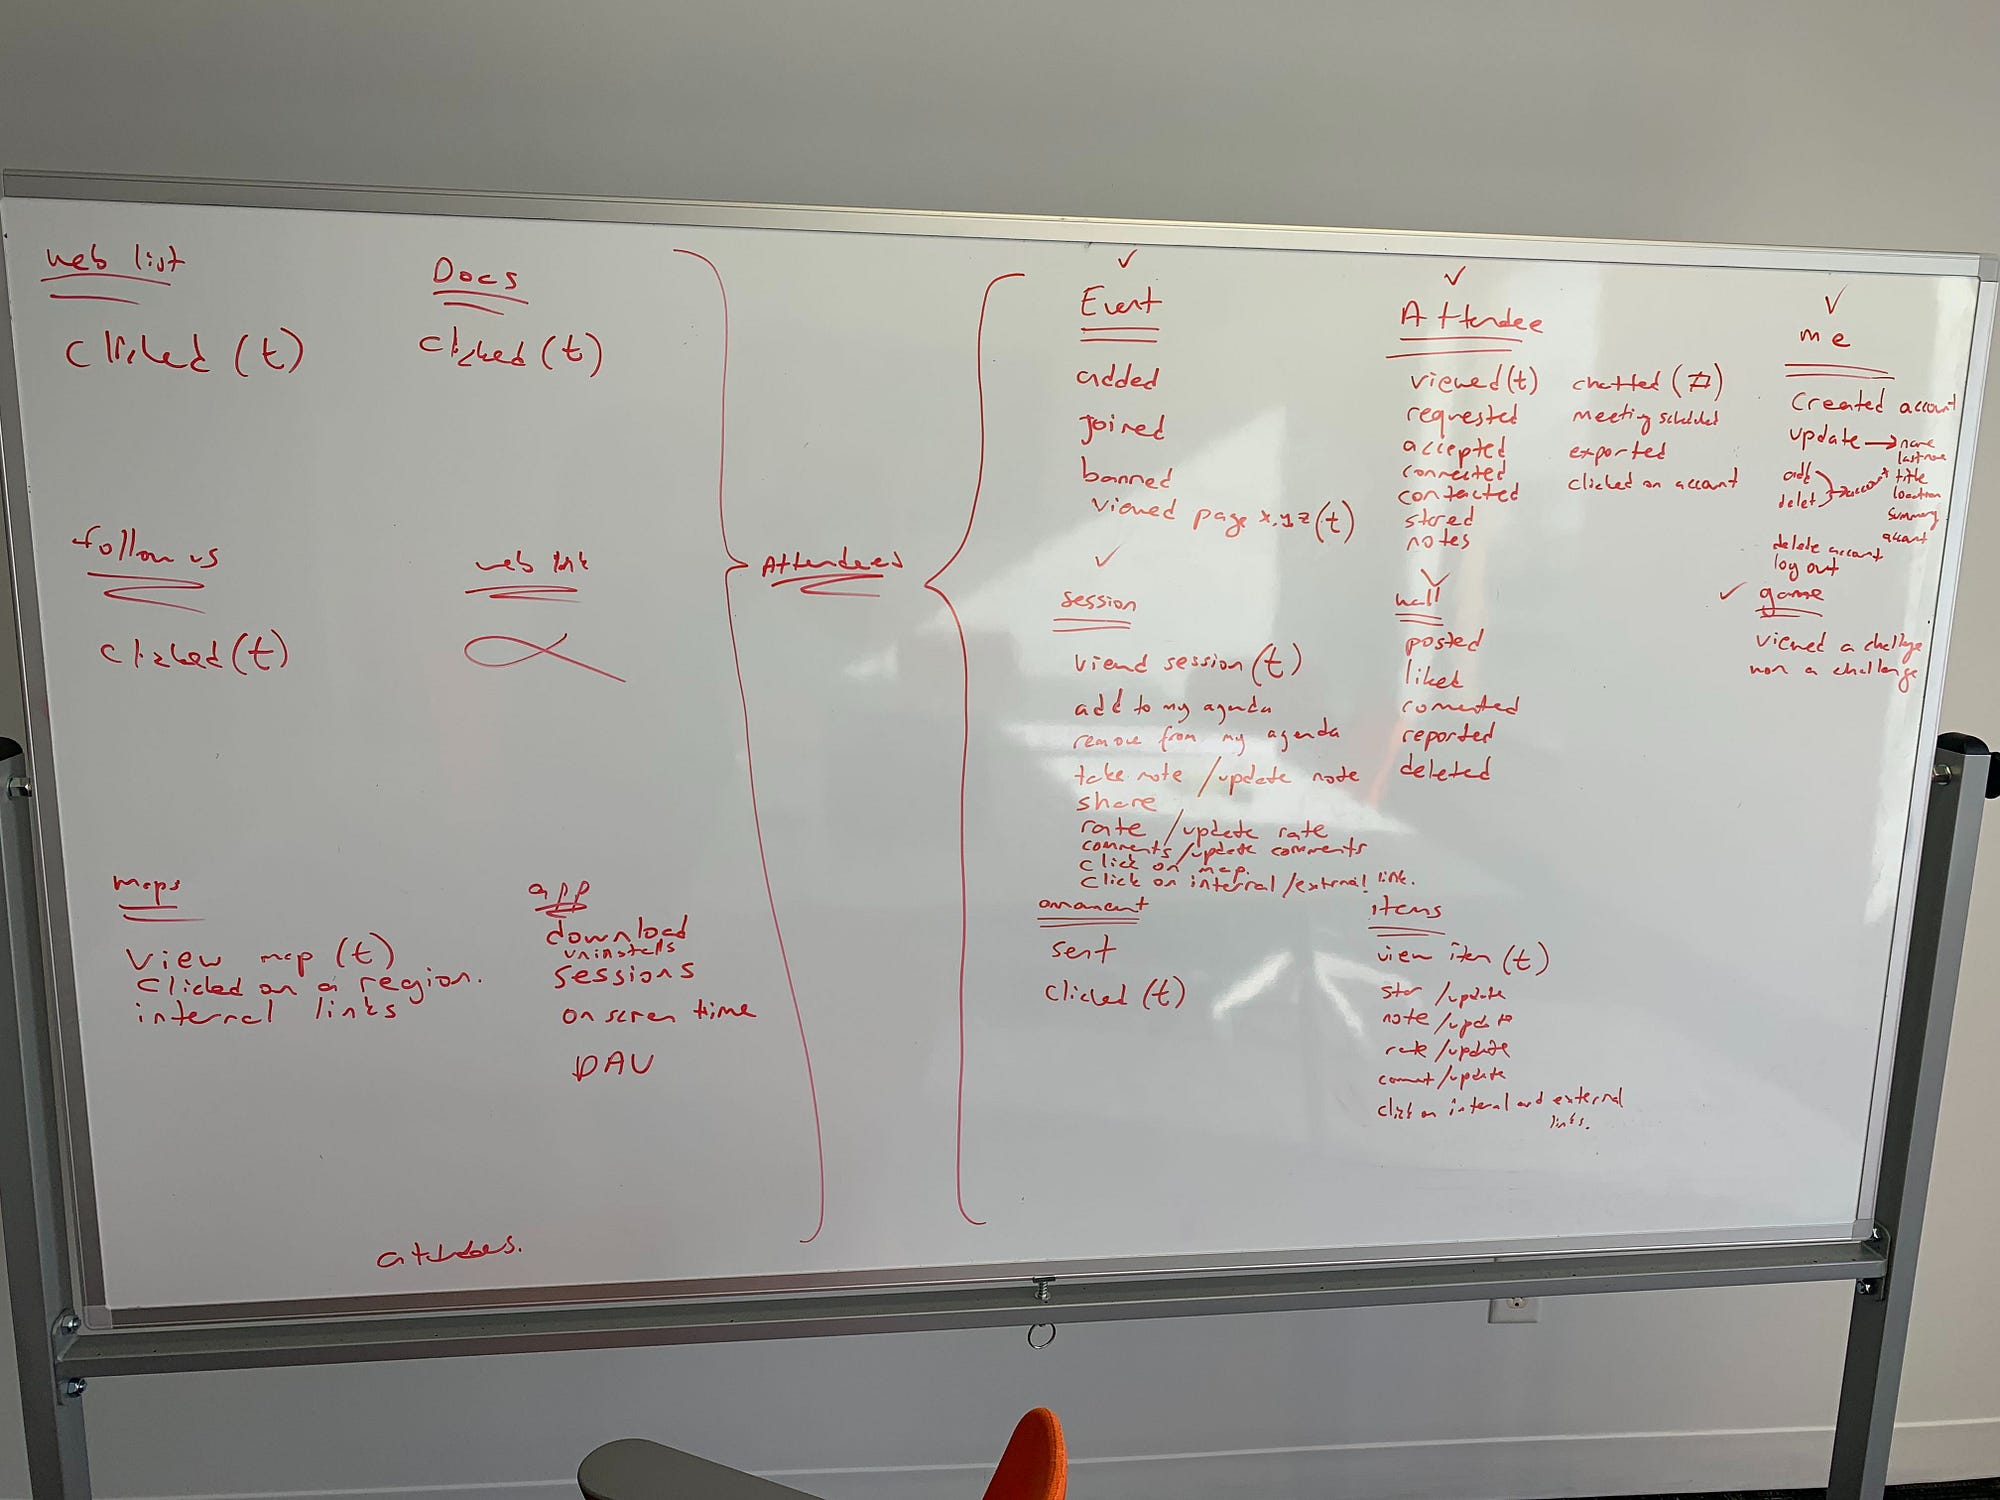 web list
clicked (t)
Docs
clicked (t)
follow us
clicked (t)
web link
maps
view map (t)
clicked on a region.
internal links
app
download
uninstalls
sessions
on screen time
DAU
Attendees
Event
added
joined
banned
viewed page x,y,z (t)
Attendee
viewed (t)
requested
accepted
connected
contacted
stored
notes
chatted (#)
meeting scheduled
exported
clicked on account
me
created account
update → name
last name
title
location
summary
account
add
delet
account
delete account
log out
session
viewd session (t)
add to my agenda
remove from my agenda
take note / update note
share
rate / update rate
comments / update comments
click on map.
click on internal / external link.
wall
posted
liked
comented
reported
deleted
game
viewed a challenge
won a challenge
sent
clicked (t)
items
view item (t)
star / update
note / update
rate / update
comment / update
click on internal and external
links.